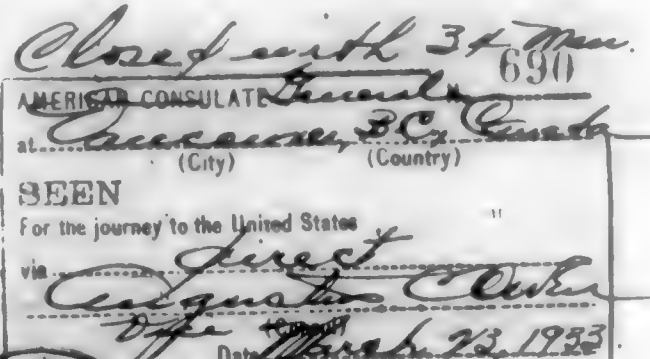 Closed with 3 x Men.
690
AMERICAN CONSULATE General
at Vancouver, B.C., Canada
(City) (Country)
SEEN
For the journey to the United States
via direct
(Consul)
Date March 23, 1933